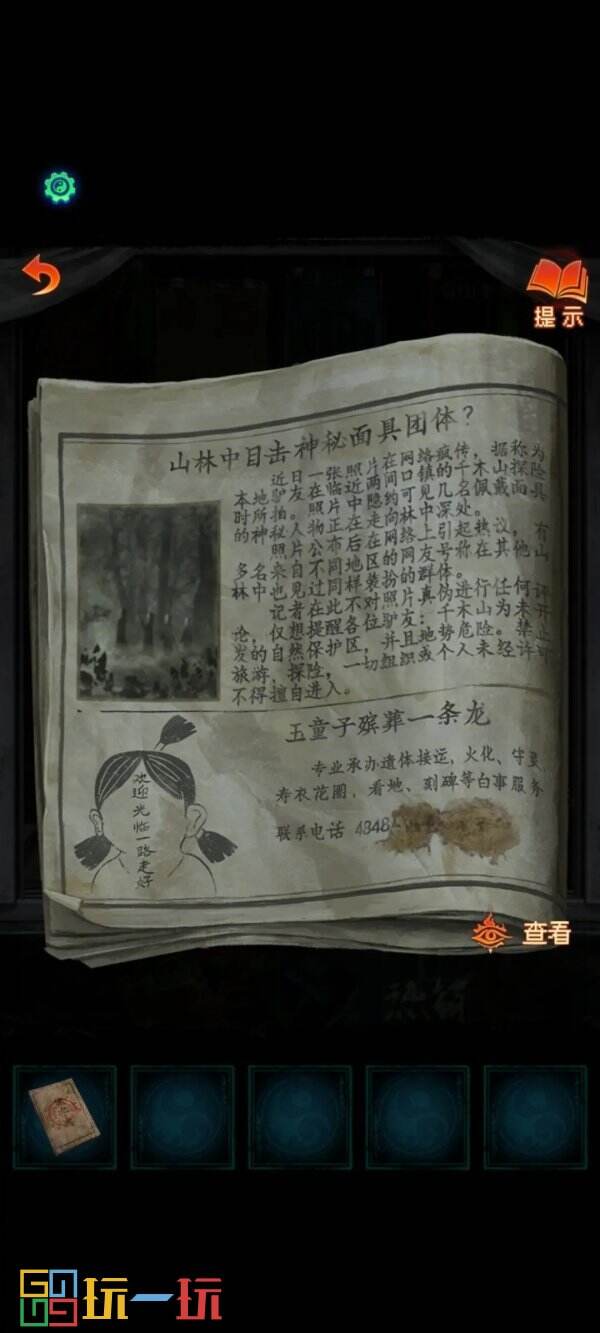 提示
山林中目击神秘面具团体？
近日一张照片在网络疯传，据称为
本地驴友在临近两间口镇的千木山探险
时所拍。照片中隐约可见几名佩戴面具
的神秘人物正在走向林中深处。
照片公布后在网络上引起热议，有
多名来自不同地区的网友号称在其他山
林中也见过同样装扮的群体。
记者在此不对照片真伪进行任何评
论，仅想提醒各位驴友：千木山为未开
发的自然保护区，并且地势危险。禁止
旅游、探险，一切组织或个人未经许可
不得擅自进入。
玉童子殡葬一条龙
专业承办遗体接运，火化、守灵
寿衣花圈，看地、刻碑等白事服务
联系电话 4848-
欢迎光临一路走好
查看
玩一玩